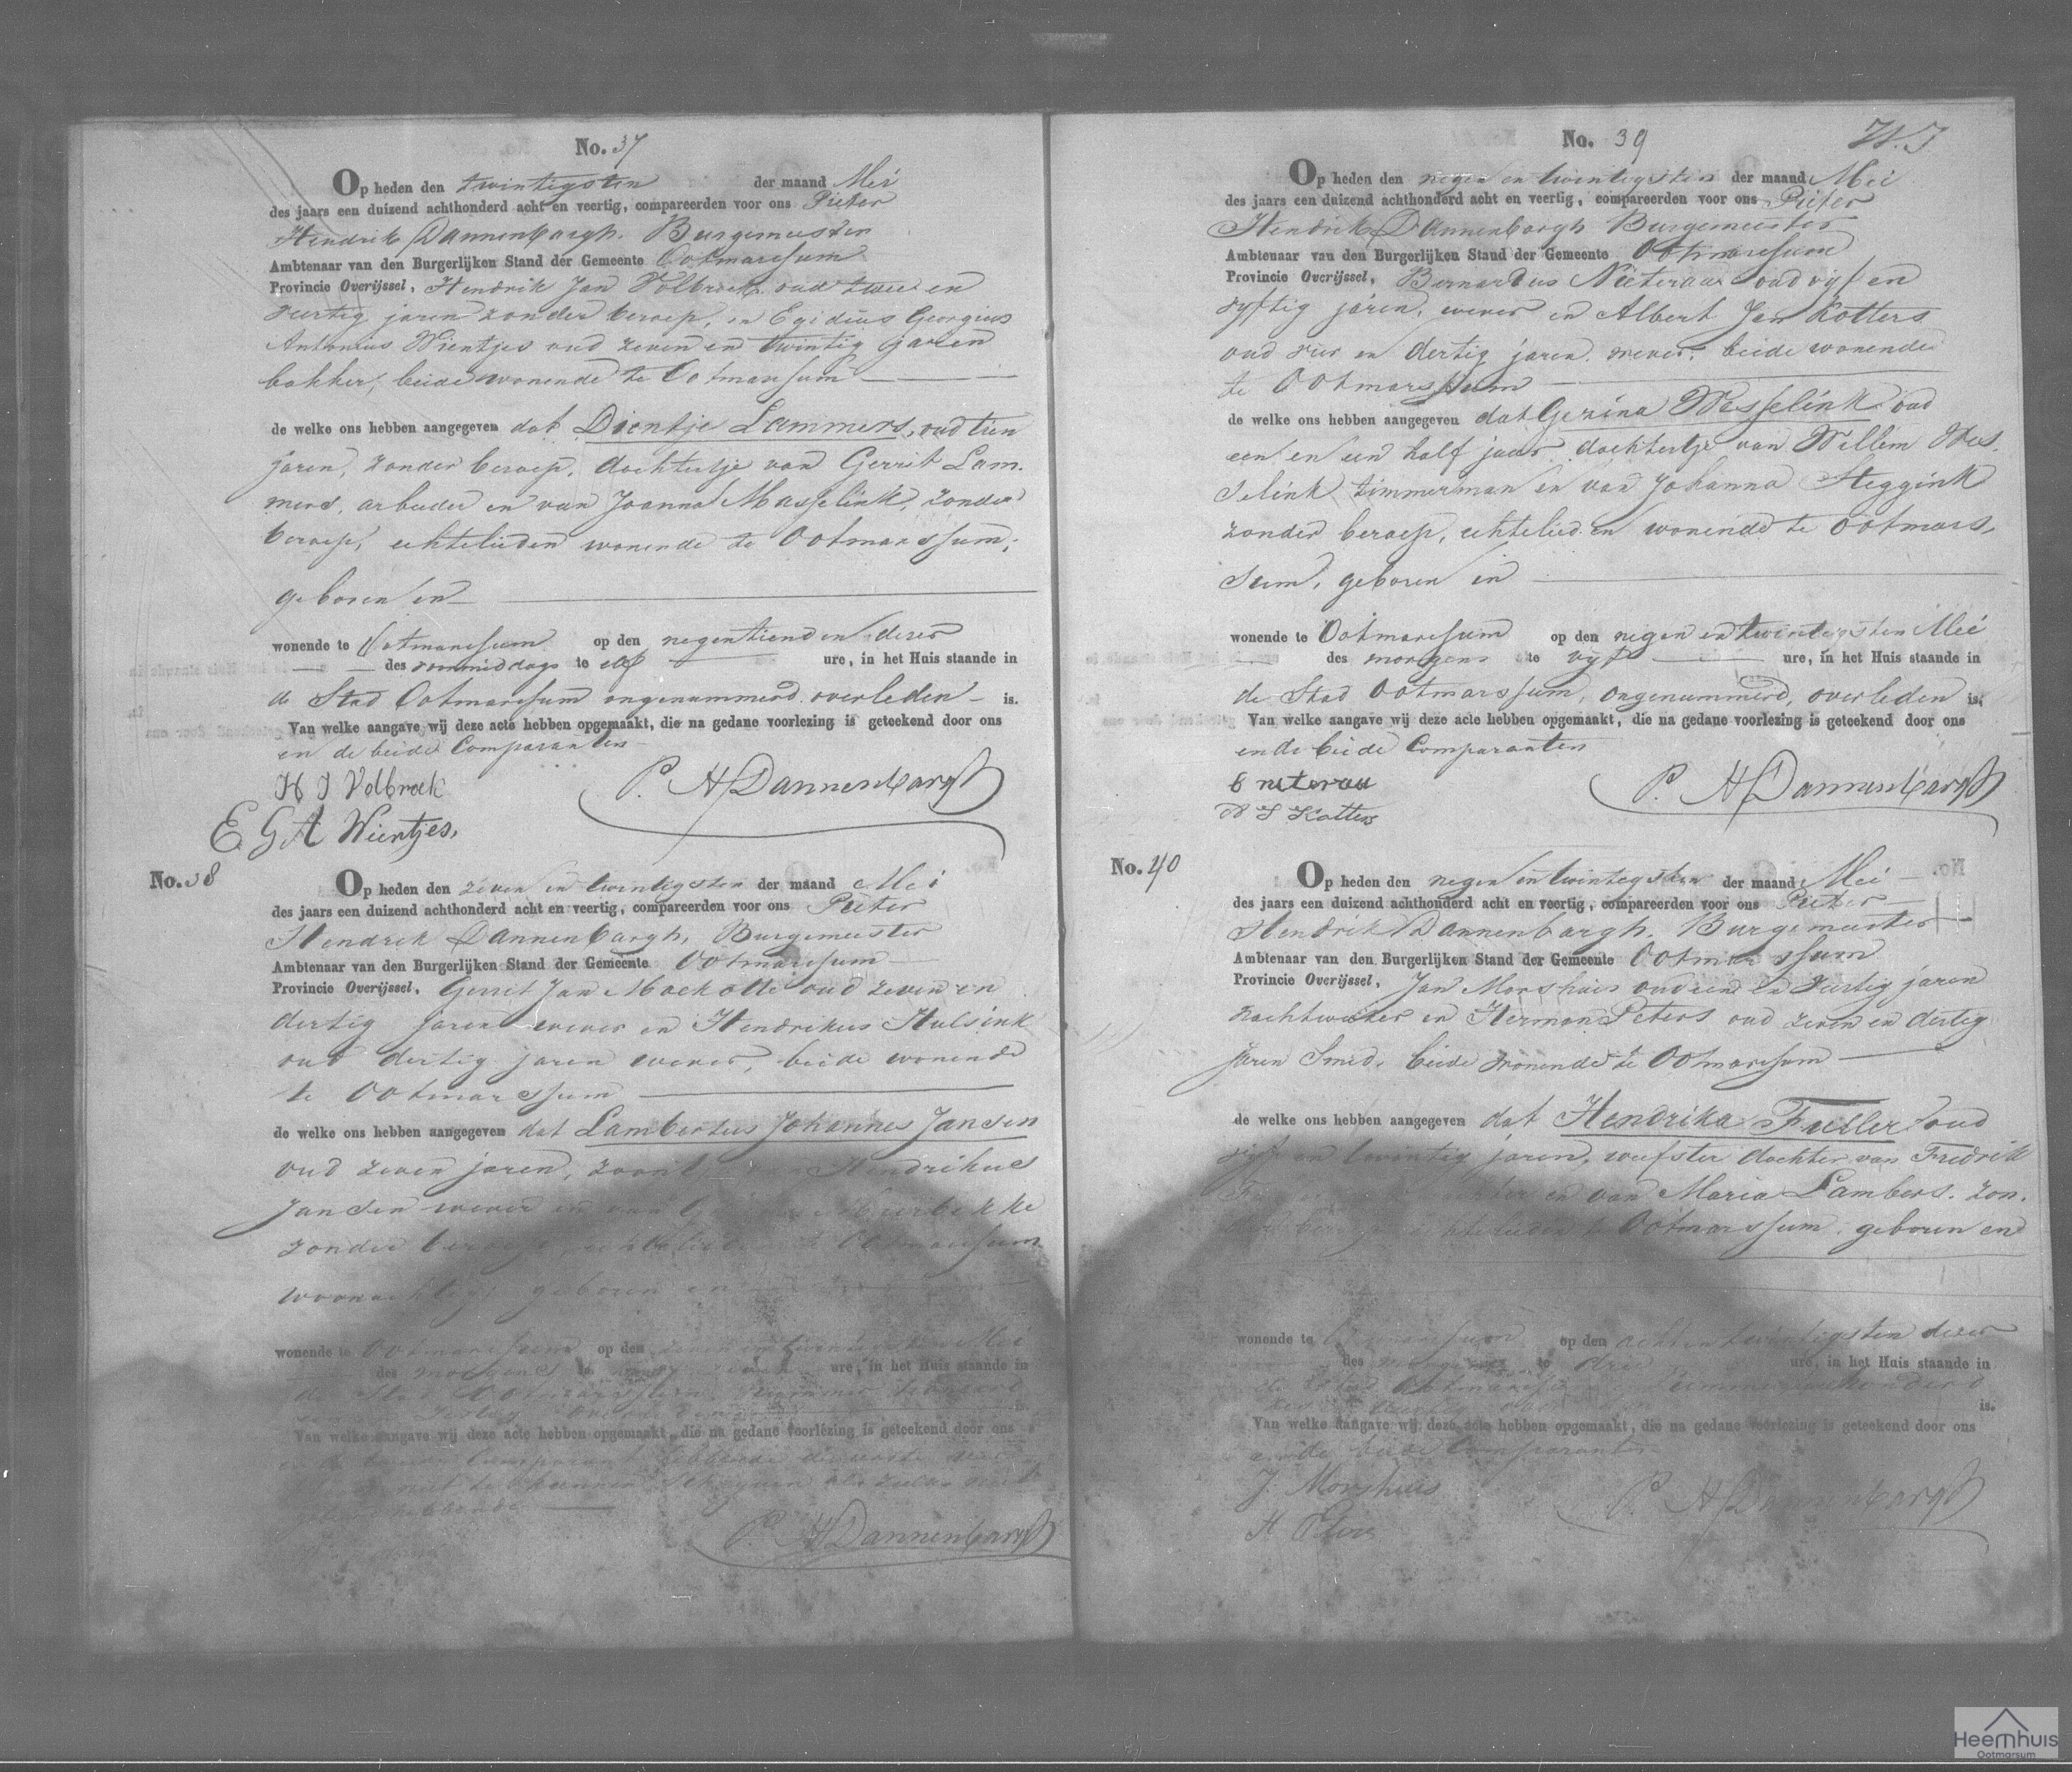 No. 37
Op heden den twintigsten der maand Mei
des jaars een duizend achthonderd acht en veertig, compareerden voor ons Pieter
Hendrik Dannenbargh. Burgemeester
Ambtenaar van den Burgerlijken Stand der Gemeente Ootmarssum
Provincie Overijssel, Hendrik Jan Volbroek oud twee en
veertig jaren zonder beroep, en Egidius Georgius
Antonius Wientjes oud zeven en twintig jaren
bakker, beide wonende te Ootmarssum
de welke ons hebben aangegeven dat Dientje Lammers, oud tien
jaren, zonder beroep, dochtertje van Gerrit Lam-
mers, arbeider en van Joanna Masselink, zonder
beroep, echtelieden wonende te Ootmarssum,
geboren en
wonende te Ootmarssum op den negentienden dezer
des voormiddags te elf ure, in het Huis staande in
de Stad Ootmarssum ongenummerd overleden is.
Van welke aangave wij deze acte hebben opgemaakt, die na gedane voorlezing is geteekend door ons
en de beide Comparanten
H J Volbroek P. H Dannenbargh
E G A Wientjes,
No. 38
Op heden den zeven en twintigsten der maand Mei
des jaars een duizend achthonderd acht en veertig, compareerden voor ons Pieter
Hendrik Dannenbargh, Burgemeester
Ambtenaar van den Burgerlijken Stand der Gemeente Ootmarssum
Provincie Overijssel, Gerrit Jan oud zeven en
dertig jaren wever en Hendrikus Hulsink
oud dertig jaren wever, beide wonende
te Ootmarssum
de welke ons hebben aangegeven dat Lambertus Johannes Jansen
oud zeven jaren, Hendrikus
Jansen wever en van
zonder beroep, echtelieden te Ootmarssum
woonachtig, geboren en
wonende te Ootmarssum op den zeven en twintigsten Mei
des morgens te ure, in het Huis staande in
de Stad Ootmarssum, nummer honderd
is.
Van welke aangave wij deze acte hebben opgemaakt, die na gedane voorlezing is geteekend door ons
P. H Dannenbargh
No. 39
Op heden den negen en twintigsten der maand Mei
des jaars een duizend achthonderd acht en veertig, compareerden voor ons Pieter
Hendrik Dannenbargh Burgemeester
Ambtenaar van den Burgerlijken Stand der Gemeente Ootmarssum
Provincie Overijssel, Bernardus Nieteraa oud vijf en
vijftig jaren, wever en Albert Jan Kotters
oud vier en dertig jaren. wever, beide wonende
te Ootmarssum
de welke ons hebben aangegeven dat Gezina Wesselink oud
een en een half jaar dochtertje van Willem Wes-
selink timmerman en van Johanna Steggink
zonder beroep, echtelieden wonende te Ootmars-
sum, geboren en
wonende te Ootmarssum op den negen en twintigsten Mei
des morgens te vijf ure, in het Huis staande in
de Stad Ootmarssum, ongenummerd, overleden is.
Van welke aangave wij deze acte hebben opgemaakt, die na gedane voorlezing is geteekend door ons
en de beide Comparanten
P. H Dannenbargh
A J Kotters
No. 40
Op heden den negen en twintigsten der maand Mei
des jaars een duizend achthonderd acht en veertig, compareerden voor ons Pieter
Hendrik Dannenbargh. Burgemeester
Ambtenaar van den Burgerlijken Stand der Gemeente Ootmarssum
Provincie Overijssel, Jan Morshuis oud een en veertig jaren
nachtwaker en Herman Peters oud zeven en dertig
jaren Smid, beide wonende te Ootmarssum
de welke ons hebben aangegeven dat Hendrika Fueller oud
vijf en twintig jaren, weefster dochter van Fredrik
en van Maria Lambers. zon-
der beroep echtelieden te Ootmarssum, geboren en
wonende te Ootmarssum op den acht en twintigsten dezer
des te drie ure, in het Huis staande in
de Stad Ootmarssum
is.
Van welke aangave wij deze acte hebben opgemaakt, die na gedane voorlezing is geteekend door ons
en de beide Comparanten
J. Morshuis P. H Dannenbargh
H Peters
Heemhuis
Ootmarsum